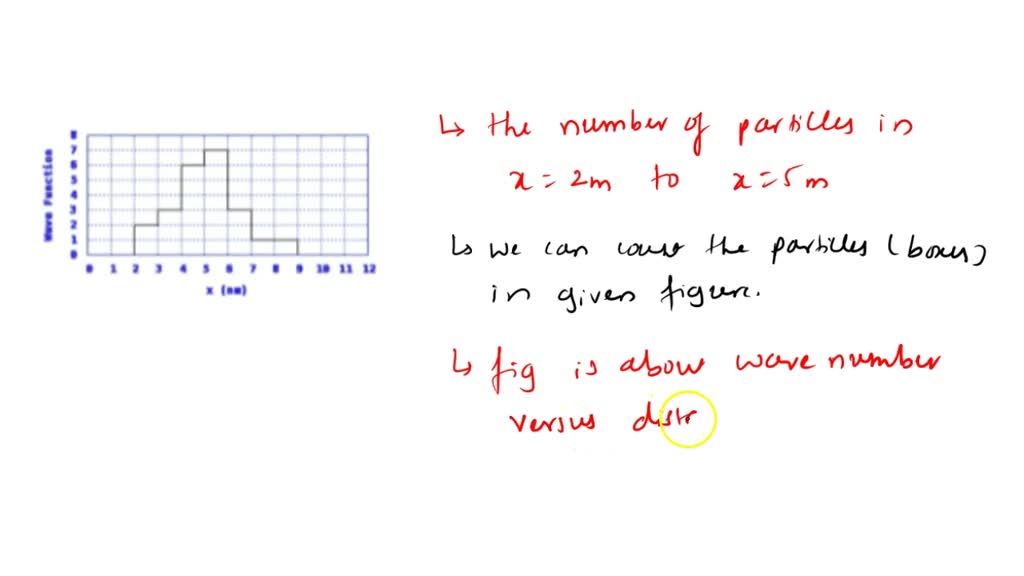 ↳ the number of particles in
x = 2m to x = 5m
↳ we can count the particles (boxes)
in given figure.
↳ fig is above wave number
versus distr
Wave Function
8
7
6
5
4
3
2
1
0
0 1 2 3 4 5 6 7 8 9 10 11 12
x (nm)